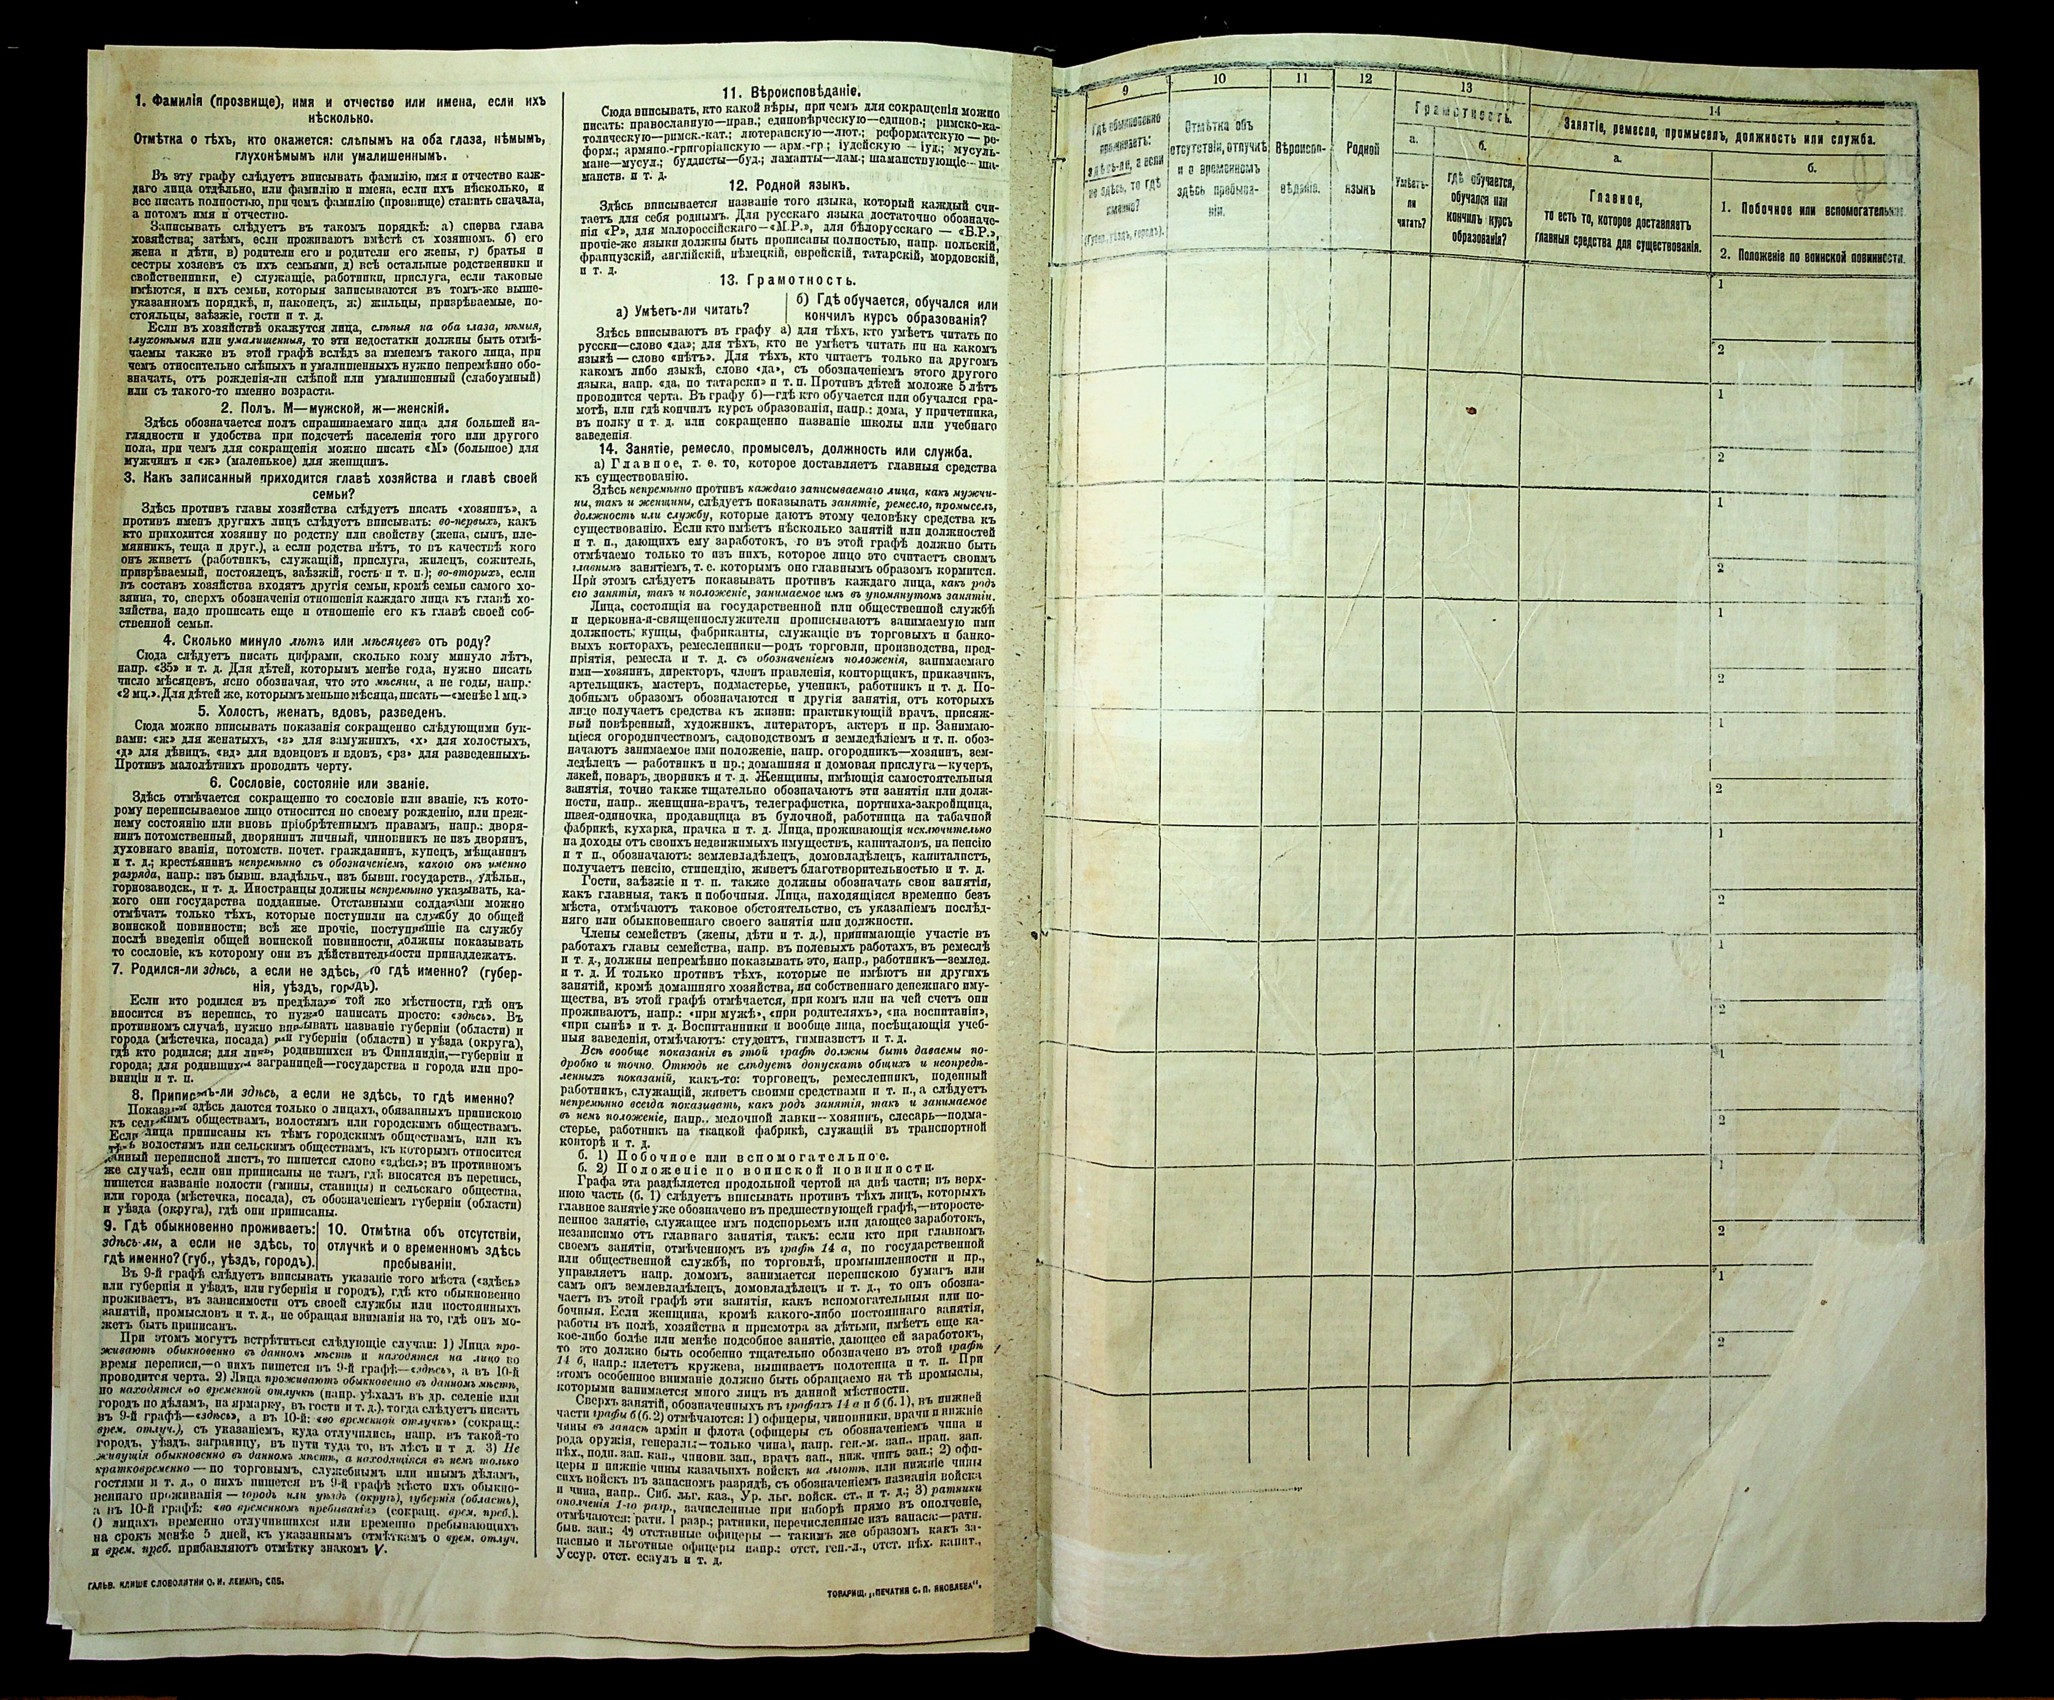 1. Фамилія (прозвище), имя и отчество или имена, если ихъ
нѣсколько.
Отмѣтка о тѣхъ, кто окажется: слѣпымъ на оба глаза, нѣмымъ,
глухонѣмымъ или умалишеннымъ.
Въ эту графу слѣдуетъ вписывать фамилію, имя и отчество каж-
даго лица отдѣльно, или фамилію и имена, если ихъ нѣсколько, и
все писать полностью, при чемъ фамилію (прозвище) ставить сначала,
а потомъ имя и отчество.
Записывать слѣдуетъ въ такомъ порядкѣ: а) сперва глава
хозяйства; затѣмъ, если проживаютъ вмѣстѣ съ хозяиномъ. б) его
жена и дѣти, в) родители его и родители его жены, г) братья и
сестры хозяевъ съ ихъ семьями, д) всѣ остальные родственники и
свойственники, е) служащіе, работники, прислуга, если таковые
имѣются, и ихъ семьи, которыя записываются въ томъ-же выше-
указанномъ порядкѣ, и, наконецъ, ж) жильцы, призрѣваемые, по-
стояльцы, заѣзжіе, гости и т. д.
Если въ хозяйствѣ окажутся лица, слѣпыя на оба глаза, нѣмыя,
глухонѣмыя или умалишенныя, то эти недостатки должны быть отмѣ-
чаемы также въ этой графѣ вслѣдъ за именемъ такого лица, при
чемъ относительно слѣпыхъ и умалишенныхъ нужно непремѣнно обо-
значать, отъ рожденія-ли слѣпой или умалишенный (слабоумный)
или съ такого-то именно возраста.
2. Полъ. М—мужской, ж—женскій.
Здѣсь обозначается полъ спрашиваемаго лица для большей на-
глядности и удобства при подсчетѣ населенія того или другого
пола, при чемъ для сокращенія можно писать «М» (большое) для
мужчинъ и «ж» (маленькое) для женщинъ.
3. Какъ записанный приходится главѣ хозяйства и главѣ своей
семьи?
Здѣсь противъ главы хозяйства слѣдуетъ писать «хозяинъ», а
противъ именъ другихъ лицъ слѣдуетъ вписывать: во-первыхъ, какъ
кто приходится хозяину по родству или свойству (жена, сынъ, пле-
мянникъ, теща и друг.), а если родства нѣтъ, то въ качествѣ кого
онъ живетъ (работникъ, служащій, прислуга, жилецъ, сожитель,
призрѣваемый, постоялецъ, заѣзжій, гость и т. п.); во-вторыхъ, если
въ составъ хозяйства входятъ другія семьи, кромѣ семьи самого хо-
зяина, то, сверхъ обозначенія отношенія каждаго лица къ главѣ хо-
зяйства, надо прописать еще и отношеніе его къ главѣ своей соб-
ственной семьи.
4. Сколько минуло лѣтъ или мѣсяцевъ отъ роду?
Сюда слѣдуетъ писать цифрами, сколько кому минуло лѣтъ,
напр. «35» и т. д. Для дѣтей, которымъ менѣе года, нужно писать
число мѣсяцевъ, ясно обозначая, что это мѣсяцы, а не годы, напр.:
«2 мц.». Для дѣтей же, которымъ меньше мѣсяца, писать—«менѣе 1 мц.»
5. Холостъ, женатъ, вдовъ, разведенъ.
Сюда можно вписывать показанія сокращенно слѣдующими бук-
вами: «ж» для женатыхъ, «з» для замужнихъ, «х» для холостыхъ,
«д» для дѣвицъ, «вд» для вдовцовъ и вдовъ, «рз» для разведенныхъ.
Противъ малолѣтнихъ проводить черту.
6. Сословіе, состояніе или званіе.
Здѣсь отмѣчается сокращенно то сословіе или званіе, къ кото-
рому переписываемое лицо относится по своему рожденію, или преж-
нему состоянію или вновь пріобрѣтеннымъ правамъ, напр.: дворя-
нинъ потомственный, дворянинъ личный, чиновникъ не изъ дворянъ,
духовнаго званія, потомств. почет. гражданинъ, купецъ, мѣщанинъ
и т. д.; крестьянинъ непремѣнно съ обозначеніемъ, какого онъ именно
разряда, напр.: изъ бывш. владѣльч., изъ бывш. государств., удѣльн.,
горнозаводск., и т. д. Иностранцы должны непремѣнно указывать, ка-
кого они государства подданные. Отставными солдатами можно
отмѣчать только тѣхъ, которые поступили на службу до общей
воинской повинности; всѣ же прочіе, поступившіе на службу
послѣ введенія общей воинской повинности, должны показывать
то сословіе, къ которому они въ дѣйствительности принадлежатъ.
7. Родился-ли здѣсь, а если не здѣсь, то гдѣ именно? (губер-
нія, уѣздъ, городъ).
Если кто родился въ предѣлахъ той же мѣстности, гдѣ онъ
вносится въ перепись, то нужно написать просто: «здѣсь». Въ
противномъ случаѣ, нужно вписывать названіе губерніи (области) и
города (мѣстечка, посада) или губерніи (области) и уѣзда (округа),
гдѣ кто родился; для лицъ, родившихся въ Финляндіи,—губерніи и
города; для родившихся заграницей—государства и города или про-
винціи и т. п.
8. Приписанъ-ли здѣсь, а если не здѣсь, то гдѣ именно?
Показанія здѣсь даются только о лицахъ, обязанныхъ припискою
къ сельскимъ обществамъ, волостямъ или городскимъ обществамъ.
Если лица приписаны къ тѣмъ городскимъ обществамъ, или къ
тѣмъ волостямъ или сельскимъ обществамъ, къ которымъ относится
данный переписной листъ, то пишется слово «здѣсь»; въ противномъ
же случаѣ, если они приписаны не тамъ, гдѣ вносятся въ перепись,
пишется названіе волости (гмины, станицы) и сельскаго общества,
или города (мѣстечка, посада), съ обозначеніемъ губерніи (области)
и уѣзда (округа), гдѣ они приписаны.
9. Гдѣ обыкновенно проживаетъ:
здѣсь-ли, а если не здѣсь, то
гдѣ именно? (губ., уѣздъ, городъ).
10. Отмѣтка объ отсутствіи,
отлучкѣ и о временномъ здѣсь
пребываніи.
Въ 9-й графѣ слѣдуетъ вписывать указаніе того мѣста («здѣсь»
или губернія и уѣздъ, или губернія и городъ), гдѣ кто обыкновенно
проживаетъ, въ зависимости отъ своей службы или постоянныхъ
занятій, промысловъ и т. д., не обращая вниманія на то, гдѣ онъ мо-
жетъ быть приписанъ.
При этомъ могутъ встрѣтиться слѣдующіе случаи: 1) Лица про-
живаютъ обыкновенно въ данномъ мѣстѣ и находятся на лицо во
время переписи,—о нихъ пишется въ 9-й графѣ—«здѣсь», а въ 10-й
проводится черта. 2) Лица проживаютъ обыкновенно въ данномъ мѣстѣ,
но находятся во временной отлучкѣ (напр. уѣхалъ въ др. селеніе или
городъ по дѣламъ, на ярмарку, въ гости и т. д.), тогда слѣдуетъ писать
въ 9-й графѣ—«здѣсь», а въ 10-й: «во временной отлучкѣ» (сокращ.:
врем. отлуч.), съ указаніемъ, куда отлучились, напр. въ такой-то
городъ, уѣздъ, заграницу, въ пути туда то, въ лѣсъ и т д. 3) Не
живущія обыкновенно въ данномъ мѣстѣ, а находящіяся въ немъ только
кратковременно — по торговымъ, служебнымъ или инымъ дѣламъ,
гостями и т. д., о нихъ пишется въ 9-й графѣ мѣсто ихъ обыкно-
веннаго проживанія — городъ или уѣздъ (округъ), губернія (область),
а въ 10-й графѣ: «во временномъ пребываніи» (сокращ. врем. преб.).
О лицахъ временно отлучившихся или временно пребывающихъ
на срокъ менѣе 5 дней, къ указаннымъ отмѣткамъ о врем. отлуч.
и врем. преб. прибавляютъ отмѣтку знакомъ V.
ГАЛЬВ. КЛИШЕ СЛОВОЛИТНИ О. И. ЛЕМАНЪ, СПБ.
11. Вѣроисповѣданіе.
Сюда вписывать, кто какой вѣры, при чемъ для сокращенія можно
писать: православную—прав.; единовѣрческую—единов.; римско-ка-
толическую—римск.-кат.; лютеранскую—лют.; реформатскую — ре-
форм.; армяно-григоріанскую — арм.-гр; іудейскую — іуд.; мусуль-
мане—мусул.; буддисты—буд.; ламаиты—лам.; шаманствующіе—ша-
манств. и т. д.
12. Родной языкъ.
Здѣсь вписывается названіе того языка, который каждый счи-
таетъ для себя роднымъ. Для русскаго языка достаточно обозначе-
нія «Р», для малороссійскаго—«М.Р.», для бѣлорусскаго — «Б.Р.»,
прочіе-же языки должны быть прописаны полностью, напр. польскій,
французскій, англійскій, нѣмецкій, еврейскій, татарскій, мордовскій,
и т. д.
13. Грамотность.
а) Умѣетъ-ли читать?
б) Гдѣ обучается, обучался или
кончилъ курсъ образованія?
Здѣсь вписываютъ въ графу а) для тѣхъ, кто умѣетъ читать по
русски—слово «да»; для тѣхъ, кто не умѣетъ читать ни на какомъ
языкѣ — слово «нѣтъ». Для тѣхъ, кто читаетъ только на другомъ
какомъ либо языкѣ, слово «да», съ обозначеніемъ этого другого
языка, напр. «да, по татарски» и т. п. Противъ дѣтей моложе 5 лѣтъ
проводится черта. Въ графу б)—гдѣ кто обучается или обучался гра-
мотѣ, или гдѣ кончилъ курсъ образованія, напр.: дома, у причетника,
въ полку и т. д. или сокращенно названіе школы или учебнаго
заведенія.
14. Занятіе, ремесло, промыселъ, должность или служба.
а) Главное, т. е. то, которое доставляетъ главныя средства
къ существованію.
Здѣсь непремѣнно противъ каждаго записываемаго лица, какъ мужчи-
ны, такъ и женщины, слѣдуетъ показывать занятіе, ремесло, промыселъ,
должность или службу, которые даютъ этому человѣку средства къ
существованію. Если кто имѣетъ нѣсколько занятій или должностей
и т. п., дающихъ ему заработокъ, то въ этой графѣ должно быть
отмѣчаемо только то изъ нихъ, которое лицо это считаетъ своимъ
главнымъ занятіемъ, т. е. которымъ оно главнымъ образомъ кормится.
При этомъ слѣдуетъ показывать противъ каждаго лица, какъ родъ
его занятія, такъ и положеніе, занимаемое имъ въ упомянутомъ занятіи.
Лица, состоящія на государственной или общественной службѣ
и церковна-и-священнослужители прописываютъ занимаемую ими
должность; купцы, фабриканты, служащіе въ торговыхъ и банко-
выхъ конторахъ, ремесленники—родъ торговли, производства, пред-
пріятія, ремесла и т. д. съ обозначеніемъ положенія, занимаемаго
ими—хозяинъ, директоръ, членъ правленія, конторщикъ, приказчикъ,
артельщикъ, мастеръ, подмастерье, ученикъ, работникъ и т. д. По-
добнымъ образомъ обозначаются и другія занятія, отъ которыхъ
лицо получаетъ средства къ жизни: практикующій врачъ, присяж-
ный повѣренный, художникъ, литераторъ, актеръ и пр. Занимаю-
щіеся огородничествомъ, садоводствомъ и земледѣліемъ и т. п. обоз-
начаютъ занимаемое ими положеніе, напр. огородникъ—хозяинъ, зем-
ледѣлецъ — работникъ и пр.; домашняя и домовая прислуга—кучеръ,
лакей, поваръ, дворникъ и т. д. Женщины, имѣющія самостоятельныя
занятія, точно также тщательно обозначаютъ эти занятія или долж-
ности, напр.. женщина-врачъ, телеграфистка, портниха-закройщица,
швея-одиночка, продавщица въ булочной, работница на табачной
фабрикѣ, кухарка, прачка и т. д. Лица, проживающія исключительно
на доходы отъ своихъ недвижимыхъ имуществъ, капиталовъ, на пенсію
и т п., обозначаютъ: землевладѣлецъ, домовладѣлецъ, капиталистъ,
получаетъ пенсію, стипендію, живетъ благотворительностью и т. д.
Гости, заѣзжіе и т. п. также должны обозначать свои занятія,
какъ главныя, такъ и побочныя. Лица, находящіяся временно безъ
мѣста, отмѣчаютъ таковое обстоятельство, съ указаніемъ послѣд-
няго или обыкновеннаго своего занятія или должности.
Члены семействъ (жены, дѣти и т. д.), принимающіе участіе въ
работахъ главы семейства, напр. въ полевыхъ работахъ, въ ремеслѣ
и т. д., должны непремѣнно показывать это, напр., работникъ—землед.
и т. д. И только противъ тѣхъ, которые не имѣютъ ни другихъ
занятій, кромѣ домашняго хозяйства, ни собственнаго денежнаго иму-
щества, въ этой графѣ отмѣчается, при комъ или на чей счетъ они
проживаютъ, напр.: «при мужѣ», «при родителяхъ», «на воспитаніи»,
«при сынѣ» и т. д. Воспитанники и вообще лица, посѣщающія учеб-
ныя заведенія, отмѣчаютъ: студентъ, гимназистъ и т. д.
Всѣ вообще показанія въ этой графѣ должны быть даваемы по-
дробно и точно. Отнюдь не слѣдуетъ допускать общихъ и неопредѣ-
ленныхъ показаній, какъ-то: торговецъ, ремесленникъ, поденный
работникъ, служащій, живетъ своими средствами и т. п., а слѣдуетъ
непремѣнно всегда показывать, какъ родъ занятія, такъ и занимаемое
въ немъ положеніе, напр.. мелочной лавки—хозяинъ, слесарь—подма-
стерье, работникъ на ткацкой фабрикѣ, служащій въ транспортной
конторѣ и т. д.
б. 1) Побочное или вспомогательное.
б. 2) Положеніе по воинской повинности.
Графа эта раздѣляется продольной чертой на двѣ части; въ верх-
нюю часть (б. 1) слѣдуетъ вписывать противъ тѣхъ лицъ, которыхъ
главное занятіе уже обозначено въ предшествующей графѣ,—второсте-
пенное занятіе, служащее имъ подспорьемъ или дающее заработокъ,
независимо отъ главнаго занятія, такъ: если кто при главномъ
своемъ занятіи, отмѣченномъ въ графѣ 14 а, по государственной
или общественной службѣ, по торговлѣ, промышленности и пр.,
управляетъ напр. домомъ, занимается перепискою бумагъ или
самъ онъ землевладѣлецъ, домовладѣлецъ и т. д., то онъ обозна-
чаетъ въ этой графѣ эти занятія, какъ вспомогательныя или по-
бочныя. Если женщина, кромѣ какого-либо постояннаго занятія,
работы въ полѣ, хозяйства и присмотра за дѣтьми, имѣетъ еще ка-
кое-либо болѣе или менѣе подсобное занятіе, дающее ей заработокъ,
то это должно быть особенно тщательно обозначено въ этой графѣ
14 б, напр.: плететъ кружева, вышиваетъ полотенца и т. п. При
этомъ особенное вниманіе должно быть обращаемо на тѣ промыслы,
которыми занимается много лицъ въ данной мѣстности.
Сверхъ занятій, обозначенныхъ въ графахъ 14 а и б (б. 1), въ нижней
части графы б (б.2) отмѣчаются: 1) офицеры, чиновники, врачи и нижніе
чины въ запасѣ арміи и флота (офицеры съ обозначеніемъ чина и
рода оружія, генералы—только чина), напр. ген.-м. зап., прап. зап.
пѣх., подп. зап. кав., чиновн. зап., врачъ зап., ниж. чинъ зап.; 2) офи-
церы и нижніе чины казачьихъ войскъ на льготѣ, или нижніе чины
сихъ войскъ въ запасномъ разрядѣ, съ обозначеніемъ названія войска
и чина, напр.. Сиб. льг. каз., Ур. льг. войск. ст.. и т. д.; 3) ратники
ополченія 1-го разр., зачисленные при наборѣ прямо въ ополченіе,
отмѣчаются: ратн. 1 разр.; ратники, перечисленные изъ запаса:—ратн.
быв. зап.; 4) отставные офицеры — такимъ же образомъ какъ за-
пасные и льготные офицеры напр.: отст. ген.-л., отст. пѣх. капит.,
Уссур. отст. есаулъ и т. д.
ТОВАРИЩ. „ПЕЧАТНЯ С. П. ЯКОВЛЕВА".
9
10
11
12
13
14
Гдѣ обыкновенно
проживаетъ:
здѣсь-ли, а если
не здѣсь, то гдѣ
именно?
(Губер., уѣздъ, городъ).
Отмѣтка объ
отсутствіи, отлучкѣ
и о временномъ
здѣсь пребыва-
ніи.
Вѣроиспо-
вѣданіе.
Родной
языкъ
Грамотность.
а.
Умѣетъ-
ли
читать?
б.
гдѣ обучается,
обучался или
кончилъ курсъ
образованія?
Занятіе, ремесло, промыселъ, должность или служба.
а.
Главное,
то есть то, которое доставляетъ
главныя средства для существованія.
б.
1. Побочное или вспомогательное.
2. Положеніе по воинской повинности.
1
2
1
2
1
2
1
2
1
2
1
2
1
2
1
2
1
2
1
2